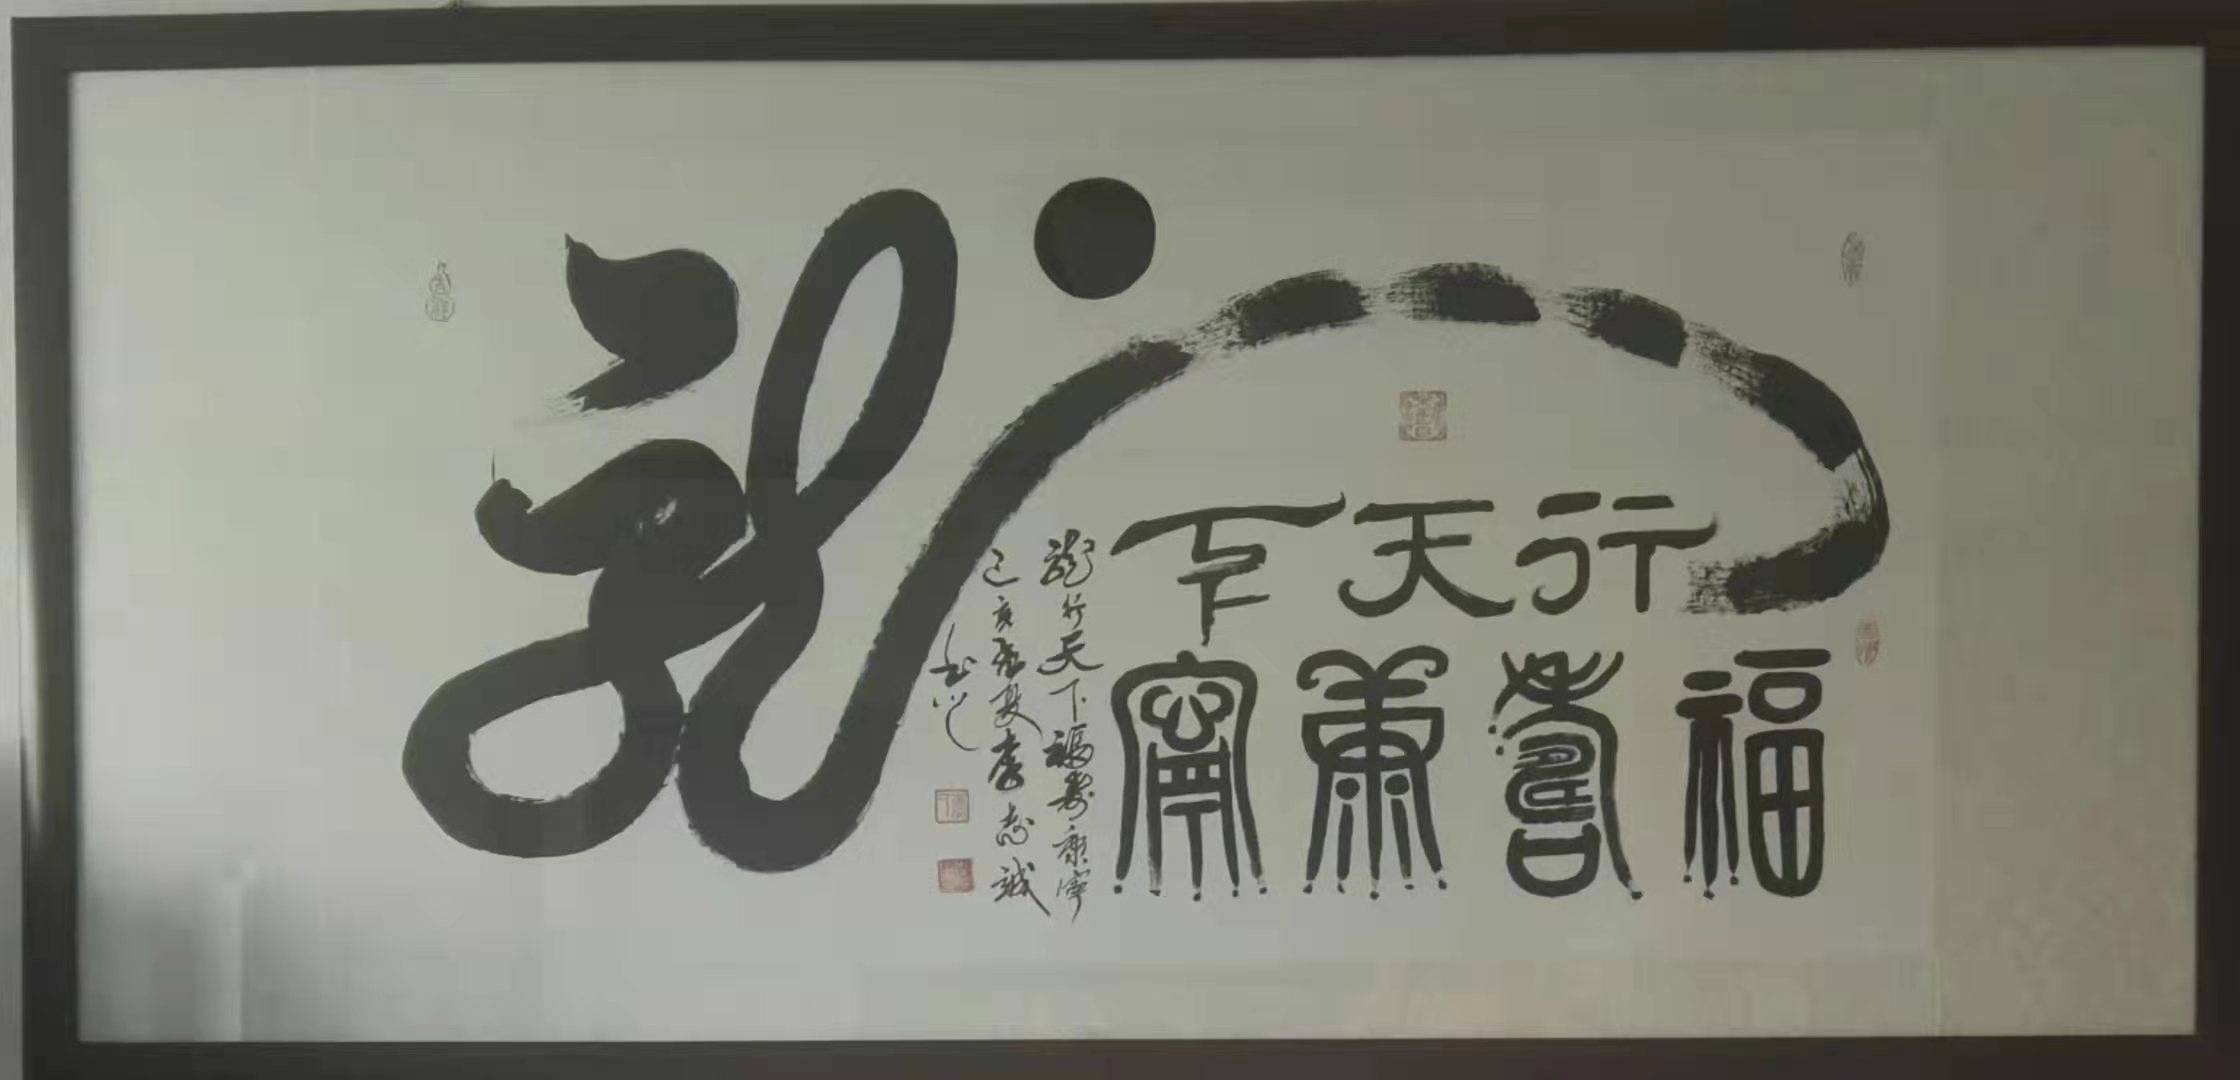 龍
行天下
福壽康寧
龍行天下福壽康寧
己亥孟夏李志誠
書